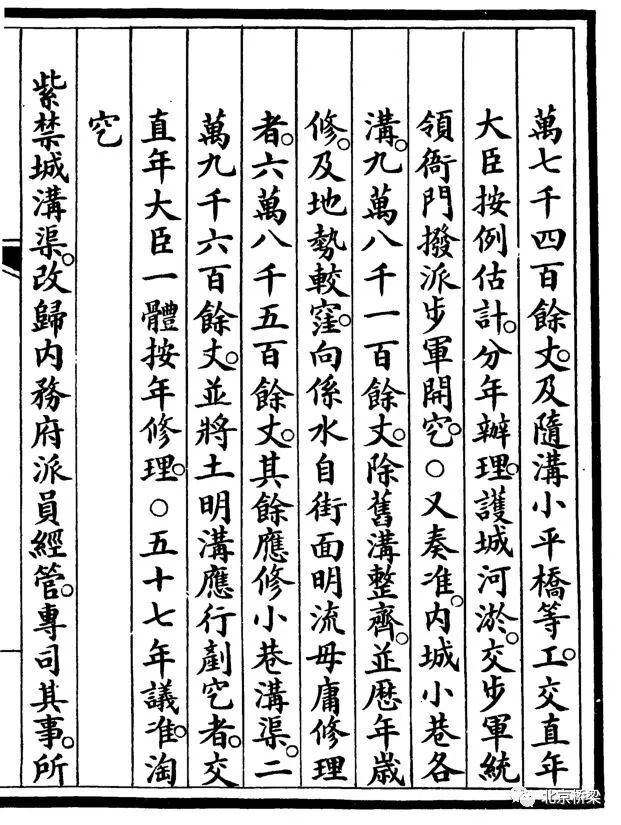 萬七千四百餘丈。及隨溝小平橋等工。交直年
大臣按例估計。分年辦理。護城河淤。交步軍統
領衙門撥派步軍開穵。○又奏准。內城小巷各
溝。九萬八千一百餘丈。除舊溝整齊。並歷年歲
修。及地勢較窪。向係水自街面明流毋庸修理
者。六萬八千五百餘丈。其餘應修小巷溝渠。二
萬九千六百餘丈。並將土明溝應行剷穵者。交
直年大臣一體按年修理。○五十七年議准。淘
穵
紫禁城溝渠。改歸內務府派員經管。專司其事。所
北京桥梁